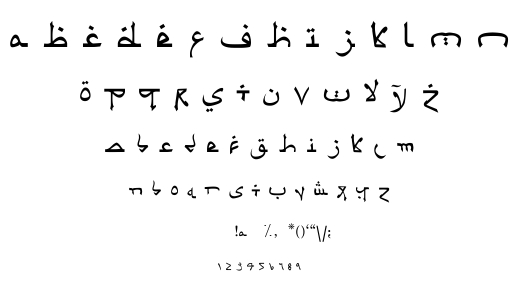 a b c d e f g h i j k l m n
o p q r s t u v w x y z
a b c d e f g h i j k l m
n o p q r s t u v w x y z
!a %, *()‘“\/;
1 2 3 4 5 6 7 8 9